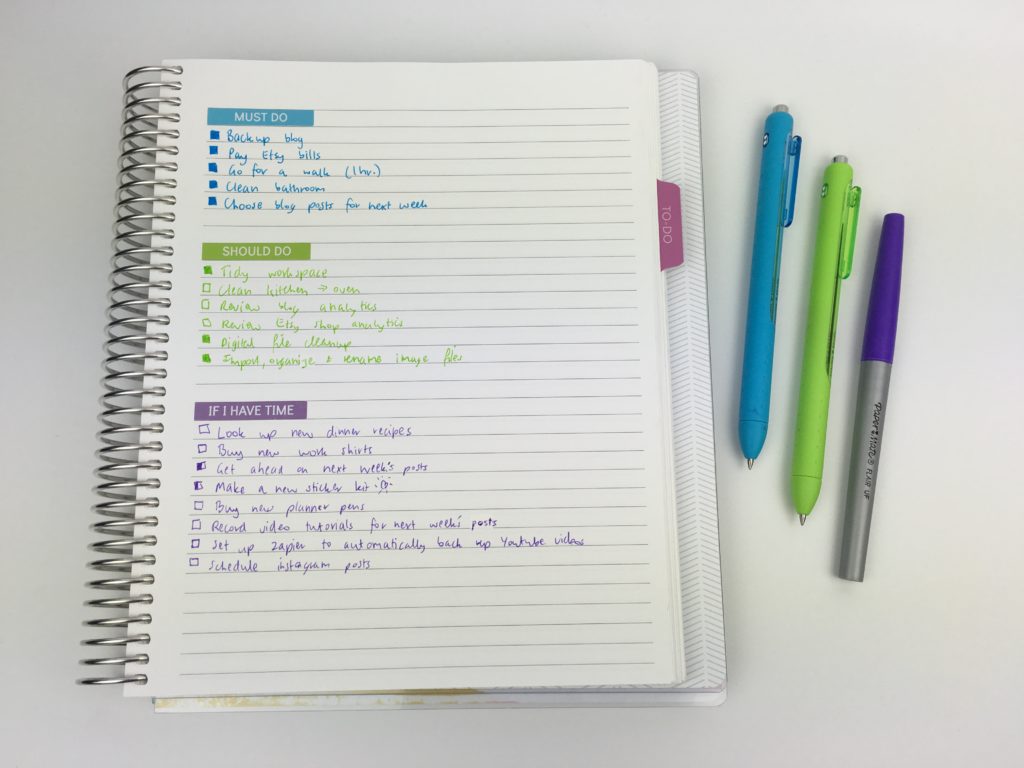 MUST DO
Backup blog
Pay Etsy bills
Go for a walk (1hr.)
Clean bathroom
Choose blog posts for next week
SHOULD DO
Tidy workspace
Clean kitchen → oven
Review blog analytics
Review Etsy shop analytics
Digital file cleanup
Import, organize + rename image files
IF I HAVE TIME
Look up new dinner recipes
Buy new work shirts
Get ahead on next week's posts
Make a new sticker kit
Buy new planner pens
Record video tutorials for next week's posts
Set up Zapier to automatically back up Youtube videos
Schedule instagram posts
TO-DO
Paper Mate® FLAIR UF